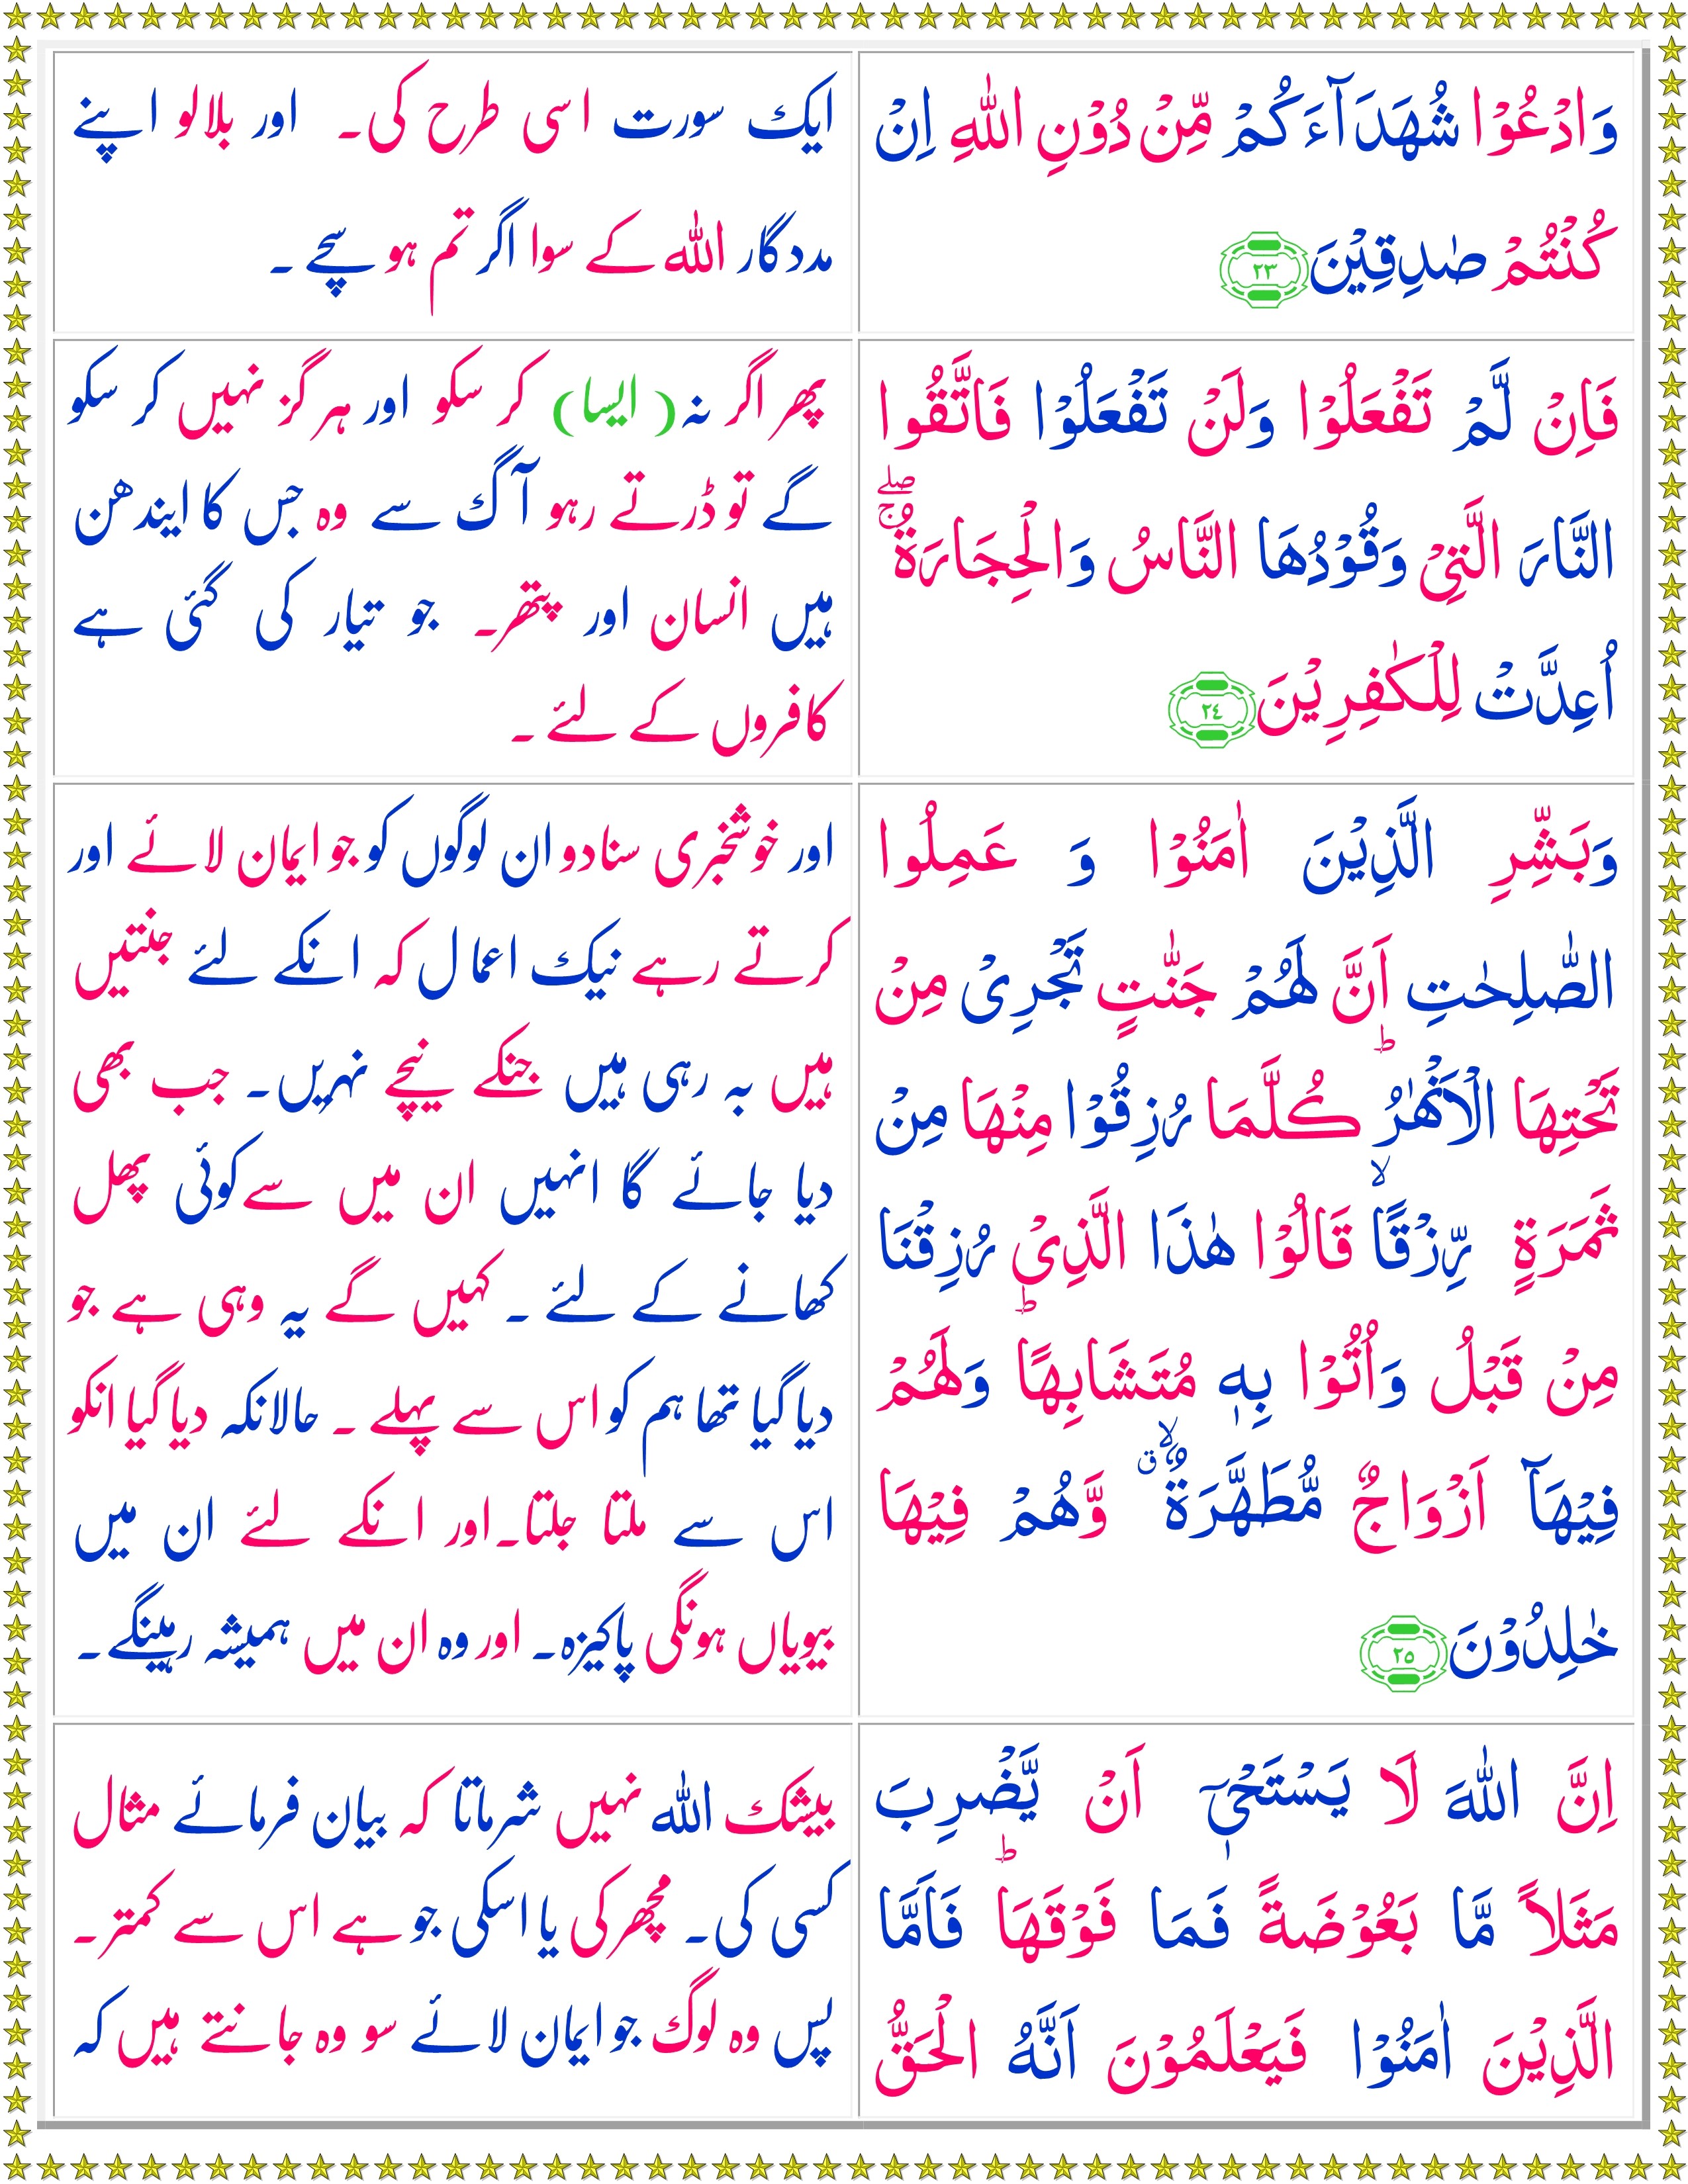 وَادْعُوْا شُهَدَآءَكُمْ مِّنْ دُوْنِ اللّٰهِ اِنْ
كُنْتُمْ صٰدِقِيْنَ ٢٣
ایک سورت اسی طرح کی۔ اور بلالو اپنے
مددگار اللہ کے سوا اگر تم ہو سچے ۔
فَاِنْ لَّمْ تَفْعَلُوْا وَلَنْ تَفْعَلُوْا فَاتَّقُوا
النَّارَ الَّتِىْ وَقُوْدُهَا النَّاسُ وَالْحِجَارَةُ ۖۚ
اُعِدَّتْ لِلْكٰفِرِيْنَ ٢٤
پھر اگر نہ (ایسا) کر سکو اور ہرگز نہیں کر سکو
گے تو ڈرتے رہو آگ سے وہ جس کا ایندھن
ہیں انسان اور پتھر۔ جو تیار کی گئی ہے
کافروں کے لئے ۔
وَبَشِّرِ الَّذِيْنَ اٰمَنُوْا وَ عَمِلُوا
الصّٰلِحٰتِ اَنَّ لَهُمْ جَنّٰتٍ تَجْرِىْ مِنْ
تَحْتِهَا الْاَنْهٰرُ ؕ كُلَّمَا رُزِقُوْا مِنْهَا مِنْ
ثَمَرَةٍ رِّزْقًا ۙ قَالُوْا هٰذَا الَّذِىْ رُزِقْنَا
مِنْ قَبْلُ ؕ وَاُتُوْا بِهٖ مُتَشَابِهًا وَلَهُمْ
فِيْهَآ اَزْوَاجٌ مُّطَهَّرَةٌ ۙۗ وَّهُمْ فِيْهَا
خٰلِدُوْنَ ٢٥
اور خوشخبری سنادو ان لوگوں کو جو ایمان لائے اور
کرتے رہے نیک اعمال کہ انکے لئے جنتیں
ہیں بہ رہی ہیں جنکے نیچے نہریں۔ جب بھی
دیا جائے گا انہیں ان میں سے کوئی پھل
کھانے کے لئے ۔ کہیں گے یہ وہی ہے جو
دیا گیا تھا ہم کو اس سے پہلے ۔ حالانکہ دیا گیا انکو
اس سے ملتا جلتا۔ اور انکے لئے ان میں
بیویاں ہونگی پاکیزہ۔ اور وہ ان میں ہمیشہ رہینگے۔
اِنَّ اللّٰهَ لَا يَسْتَحْىٖۤ اَنْ يَّضْرِبَ
مَثَلًا مَّا بَعُوْضَةً فَمَا فَوْقَهَا ؕ فَاَمَّا
الَّذِيْنَ اٰمَنُوْا فَيَعْلَمُوْنَ اَنَّهُ الْحَقُّ
بیشک اللہ نہیں شرماتا کہ بیان فرمائے مثال
کسی کی۔ مچھر کی یا اسکی جو ہے اس سے کمتر۔
پس وہ لوگ جو ایمان لائے سو وہ جانتے ہیں کہ